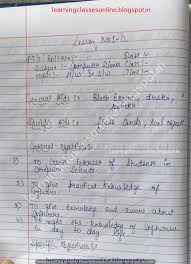 learningclassesonline.blogspot.com
Lesson No:- 12
Date :-
Subject :- Computer Science Class :-
Topic :- H/W & S/W Time :-
General Aids :- Black Board, duster,
Specific Aids :- Flash Cards, Real object
1) To create Interest of Students in
Computer Science
2) To give practical knowledge of
software
3) To give knowledge and aware about
software
4) To make the knowledge of software
in day to day life
Specific objectives :-